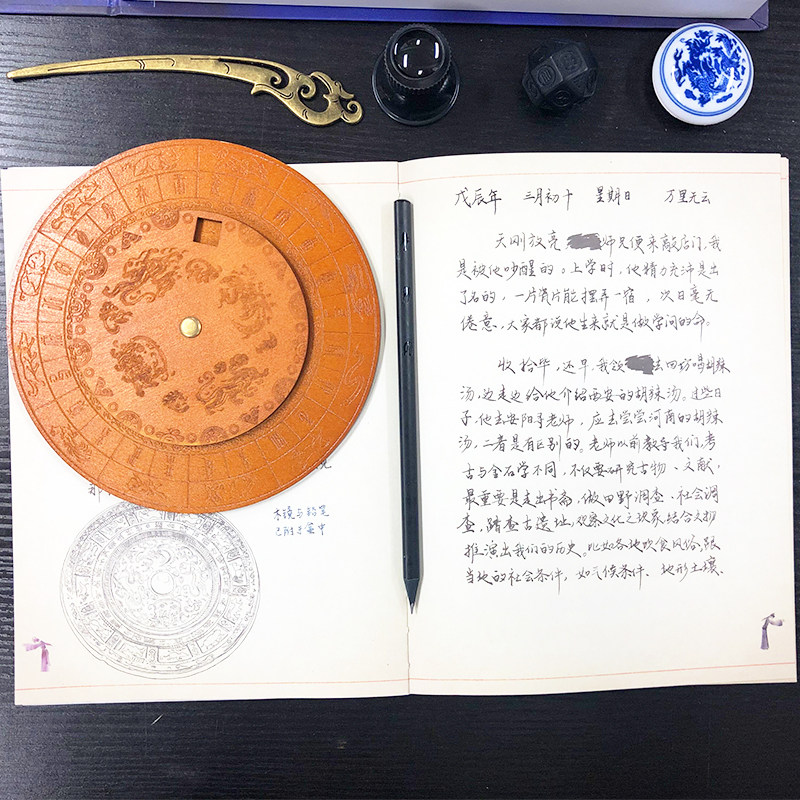 戊辰年 三月初十 星期日 万里无云
天刚放亮 师兄便来敲店门，我
是被他吵醒的。上学时，他精力充沛是出
了名的，一片贝片能摆弄一宿，次日毫无
倦意，大家都说他生来就是做学问的命。
收拾毕，还早，我领 去回坊喝胡辣
汤，边走边给他介绍西安的胡辣汤。这些日
子，他去安阳寻老师，应去尝尝河南的胡辣
汤，二者是有区别的。老师以前教导我们，考
古与金石学不同，不仅要研究古物、文献，
最重要是走出书斋，做田野调查、社会调
查，踏查古遗址，观察文化之现象，结合文物
推演出我们的历史。比如各地饮食风俗，跟
当地的社会条件，如气候条件、地形土壤、
那
木镜与铅笔
已附于盒中